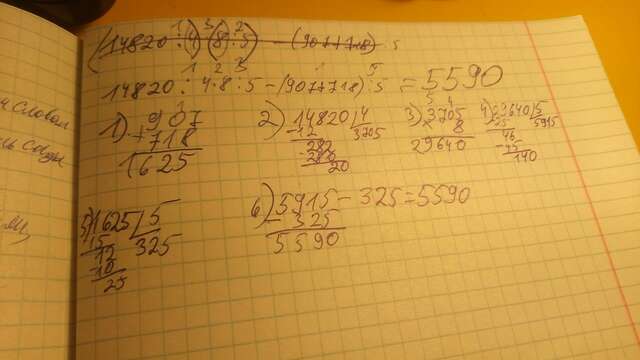 (14820 : 4) (8 · 5) - (907+718) : 5
14820 : 4 · 8 · 5 - (907+718) : 5 = 5590
1) 907
+718
1625
2) 14820 | 4
-12 3705
28
28
20
3) 3705
× 8
29640
4) 29640 | 5
5915
46
-45
140
5) 1625 | 5
15 325
12
-10
25
6) 5915 - 325 = 5590
- 325
5590